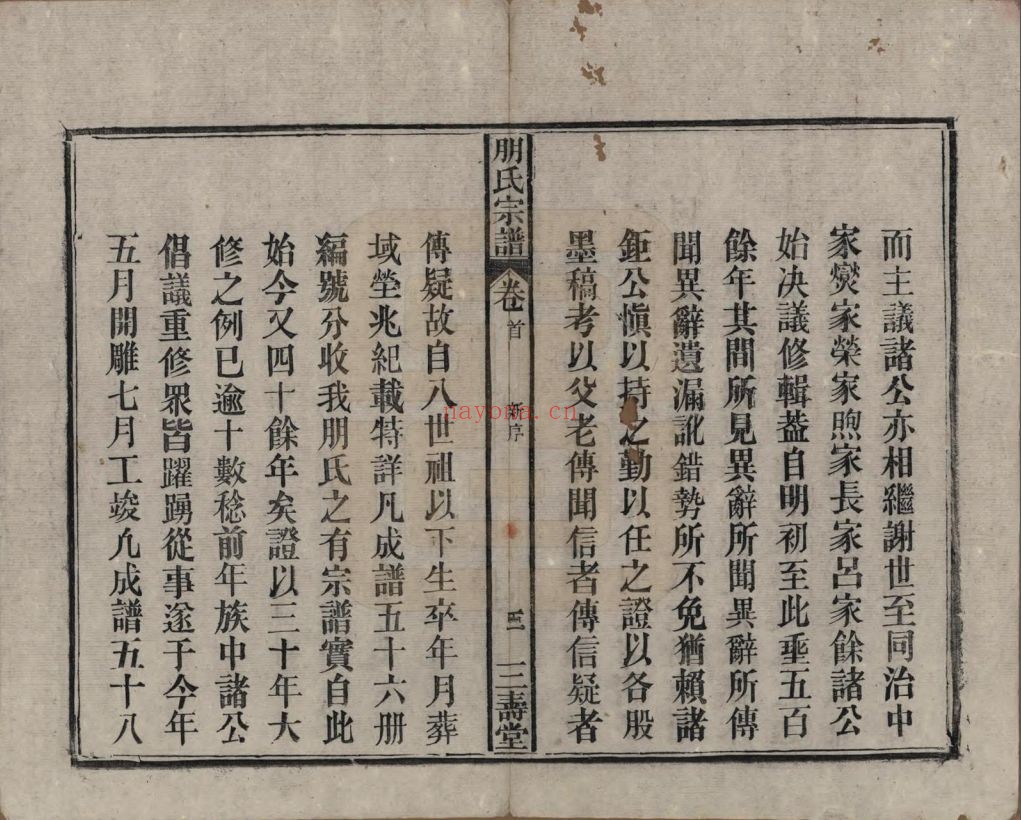 而主議諸公亦相繼謝世至同治中
家爕家榮家煦家長家呂家餘諸公
始决議修輯葢自明初至此垂五百
餘年其間所見異辭所聞異辭所傳
聞異辭遺漏訛錯勢所不免猶賴諸
鉅公愼以持之勤以任之證以各股
墨稿考以父老傳聞信者傳信疑者
朋氏宗譜
卷首
新序
三壽堂
傳疑故自八世祖以下生卒年月葬
域塋兆紀載特詳凡成譜五十六册
編號分收我朋氏之有宗譜實自此
始今又四十餘年矣證以三十年大
修之例已逾十數稔前年族中諸公
倡議重修眾皆躍踴從事遂于今年
五月開雕七月工竣凡成譜五十八
nayona.cn